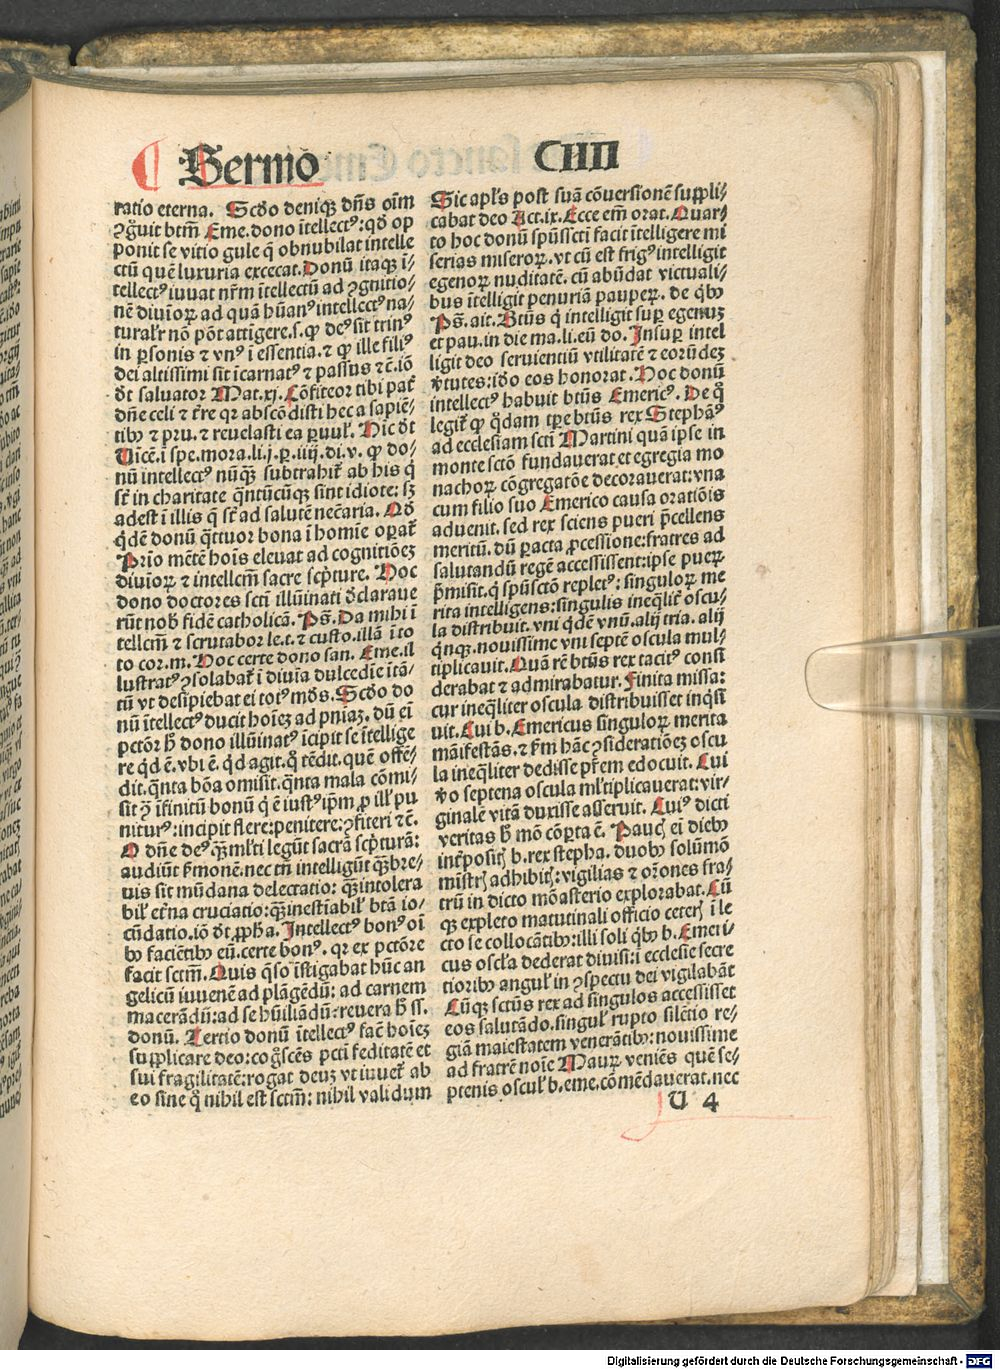 Sermo CIIII
ratio eterna. Scd̄o deniqꝫ dn̄s oīm
ꝯgͣuit btm̄ Eme. dono ītellectꝰ: qd̓ op
ponit se vitio gule qͥ obnubilat intelle
ctū quē luxuria excecat. Donū itaqꝫ ī-
tellectꝰ iuuat nr̄m ītellectū ad ꝯgnitio-
nē diuīoꝝ ad quā hūanꝰ intellectꝰ na-
turalr̓ nō pōt attigere. s. ꝙ deꝰ sit trinꝰ
in ꝑsonis ⁊ vnꝰ ī essentia. ⁊ ꝙ ille filiꝰ
dei altissimi sit īcarnatꝰ ⁊ passus ⁊ c̄. iō
d̓t saluator Mat. xj. Cōfiteor tibi pat̓
dn̄e celi ⁊ tr̄e qꝛ abscōdisti hec a sapiē-
tibꝫ ⁊ pru. ⁊ reuelasti ea ꝑuul̓. Hic d̓t
Uicē. ī spe. mora. li. j. ꝑ. iiij. di. v. ꝙ do-
nū intellectꝰ nūqͣꝫ subtrahit̓ ab his qͥ
st̓ in charitate qͣntūcūqꝫ sint idiote: sꝫ
adest ī illis qͥ st̓ ad salutē nec̄aria. Qd̓
qͥdē donū qͣttuor bona ī homīe oꝑat̓
Prīo mētē hoīs eleuat ad cognitiōeꝫ
diuīoꝝ ⁊ intellcm̄ sacre scp̓ture. Hoc
dono doctores scti illūinati d̓claraue
rūt nob̓ fidē catholicā. Ps̄. Da mihi ī
tellcm̄ ⁊ scrutabor le. t. ⁊ custo. illā ī to
to cor. m. Hoc certe dono san. Eme. il
lustratꝰ ꝯsolabat̓ ī diuīa dulcedīe ītā-
tū vt despiebat ei totꝰ mōs. Scd̄o do
nū ītellectꝰ ducit hoīeꝫ ad pn̄iaꝫ. dū eī
pctōr h̓ dono illūinatꝰ īcipit se ītellige
re qͥd ē. vbi ē. qͥd agit. qͦ tēdit. quē offē-
dit. qͣnta bōa omisit. qͣnta mala cōmi-
sit ꝯ īfinitū bonū qͥ ē iustꝰ ip̄m ꝓ ill̓ pu
niturꝰ: incipit flere: penitere: ꝯfiteri ⁊ c̄.
O dn̄e deꝰ qͣꝫ ml̓ti legūt sacrā scp̓turā:
audiūt s̓monē. nec tn̄ intelligūt qͣꝫ bre-
uis sit mūdana delectatio: qͣꝫ intolera
bil̓ et̓na cruciatio: qͣꝫ inestīabil̓ btā io-
cūdatio. iō d̓t ꝓph̄a. Intellectꝰ bonꝰ oī
bꝫ faciētibꝫ eū. certe bonꝰ. qꝛ ex pctōre
facit sctm̄. Quis qͥso īstigabat hūc an
gelicū iuuenē ad plāgēdū: ad carnem
macerādū: ad se hūiliādū: reuera h̓ ss.
donū. Tertio donū ītellectꝰ fac̄ hoīeꝫ
supplicare deo: cogͦscēs pcti feditatē et
sui fragilitatē: rogat deuꝫ vt iuuet̓ ab
eo sine qͦ nihil est sctm̄: nihil validum
Sic apl̓s post suā cōuersionē suppli-
cabat deo Act. ix. Ecce em̄ orat. Quar-
to hoc donū spūssctī facit ītelligere mi
serias miseroꝝ. vt cū est frigꝰ intelligit
egenoꝝ nuditatē. cū abūdat victuali-
bus ītelligit penuriā pauperꝝ. de qͥbꝫ
Ps̄. ait. Btūs qͥ intelligit suꝑ egenuꝫ
et pau. in die ma. li. eū do. Insuꝑ intel
ligit deo seruientiū vtilitatē ⁊ eorūdeꝫ
v̓tutes: iḋo eos honorat. Hoc donū
intellectꝰ habuit btūs Emericꝰ. De qͦ
legit̓ ꝙ qͦdam tꝑe btūs rex Stephanꝰ
ad ecclesiam sctī Martini quā ipse in
monte sctō fundauerat et egregia mo
nachoꝝ cōgregatōe decorauerat: vna
cum filio suo Emerico causa oratiōis
aduenit. sed rex sciens pueri p̄cellens
meritū. dū ꝑacta ꝓcessione: fratres ad
salutandū regē accessissent: ipse pueꝝ
p̄misit. qͥ spūsctō repletꝰ: singuloꝝ me
rita intelligens: singulis ineqͣlit̓ oscu-
la distribuit. vni qͥdē vnū. alij tria. alij
qͥnqꝫ. nouissime vni septē oscula mul-
tiplicauit. Quā rē btūs rex tacitꝰ consi
derabat ⁊ admirabatur. Finita missa:
cur ineqͣliter oscula distribuisset inqͥsi
uit. Cui b. Emericus singuloꝝ merita
māifestās. ⁊ s̓m hāc ꝯsideratiōeꝫ oscu
la ineqͣliter dedisse pr̄em edocuit. Cui
v̓o septena oscula ml̓tiplicauerat: vir-
ginalē vitā duxisse asseruit. Cuiꝰ dicti
veritas h̓ mō cōꝑta ē. Paucꝭ eī diebꝫ
int̓positꝭ b. rex stepha. duobꝫ solūmō
mīstrꝭ adhibitꝭ: vigilias ⁊ or̄ones fra-
trū in dicto mōasterio explorabat. Cū
qꝫ expleto matutinali officio ceterꝭ ī le
cto se collocātibꝫ: illi soli qͥbꝫ b. Emeri-
cus oscl̓a dederat diuisi: ī ecclesie secre
tioribꝫ angul̓ in ꝯspectu dei vigilabāt
Cūqꝫ sctūs rex ad singulos accessisset
eos salutādo. singul̓ rupto silētio re-
giā maiestatem venerātibꝫ: nouissime
ad fratrē noīe Mauꝝ veniēs quē se-
ptenis oscul̓ b. eme. cōmēdauerat. nec
U 4
Digitalisierung gefördert durch die Deutsche Forschungsgemeinschaft - DFG